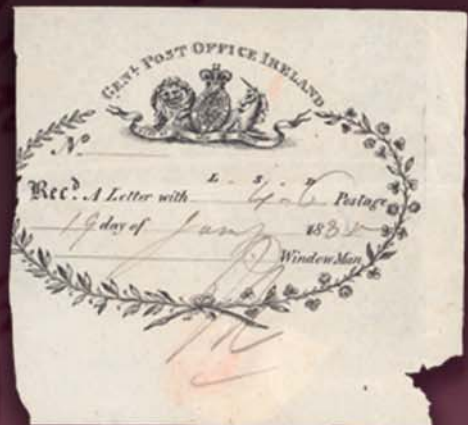 GENL POST OFFICE IRELAND
No
L. S. D
Recd. A Letter with 4-6 Postage
19 day of Jany 183
Window Man